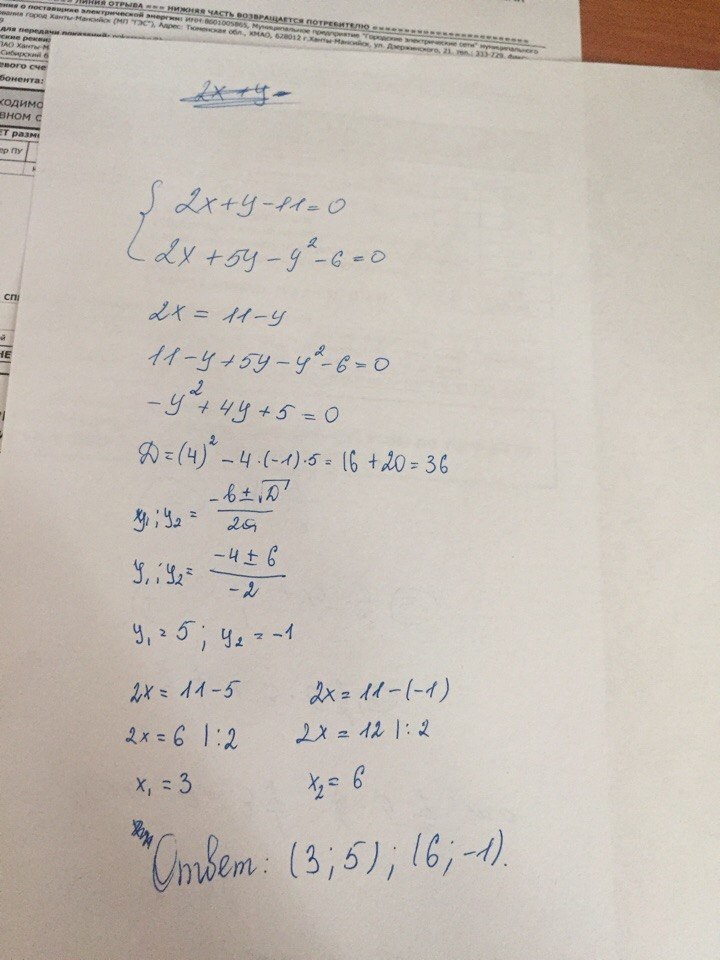 ЛИНИЯ ОТРЫВА == НИЖНЯЯ ЧАСТЬ ВОЗВРАЩАЕТСЯ ПОТРЕБИТЕЛЮ
о поставщике электрической энергии: ИНН:8601005865, Муниципальное предприятие "Городские электрические сети" муниципального
город Ханты-Мансийск (МП "ГЭС"), Адрес: Тюменская обл., ХМАО, 628012 г.Ханты-Мансийск, ул. Дзержинского, 21, тел.: 333-729,
для передачи показаний:
ПАО Ханты-М
Сибирский б
евого сче
бонента:
ХОДИМО
ВНОМ С
ЕТ разм
ер ПУ
2x+y-
{ 2x+y-11=0
2x+5y-y²-6=0
2x = 11-y
11-y+5y-y²-6=0
-y²+4y+5=0
Д=(4)²-4·(-1)·5=16+20=36
y₁;y₂ = (-b±√D)/2a
y₁;y₂= (-4±6)/-2
y₁=5; y₂=-1
2x=11-5 2x=11-(-1)
2x=6 |:2 2x=12 |:2
x₁=3 x₂=6
Ответ: (3;5); (6;-1).